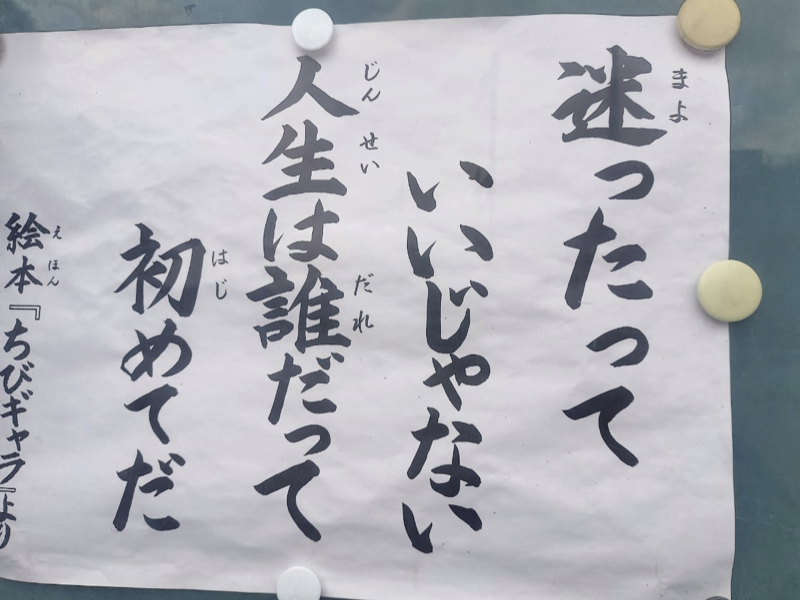 迷ったって
いいじゃない
人生は誰だって
初めてだ
絵本『ちびギャラ』より
まよ
じんせい
だれ
はじ
えほん